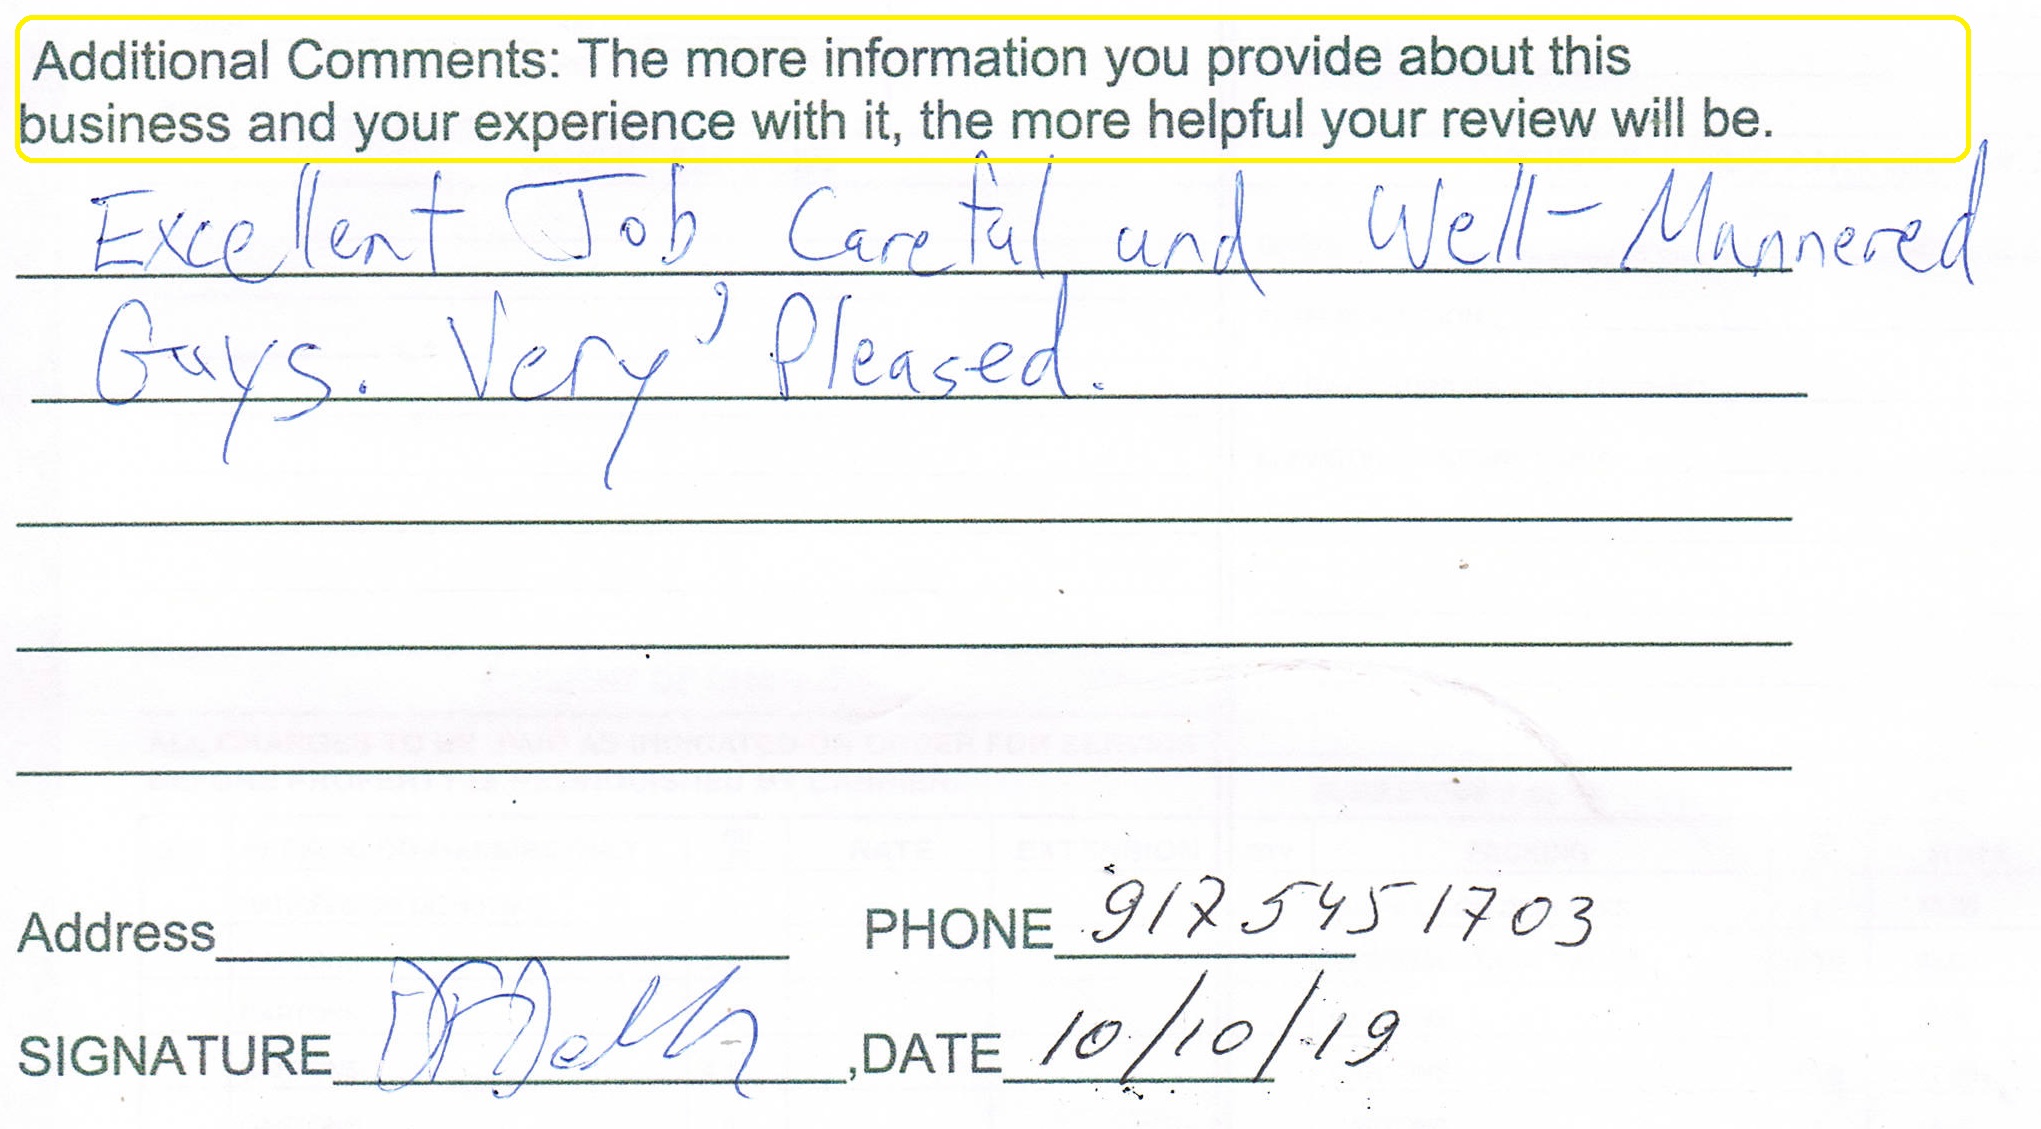 Additional Comments: The more information you provide about this
business and your experience with it, the more helpful your review will be.
Excellent Job Careful and Well-Mannered
Guys. Very Pleased.
Address PHONE 917 545 1703
SIGNATURE ,DATE 10/10/19